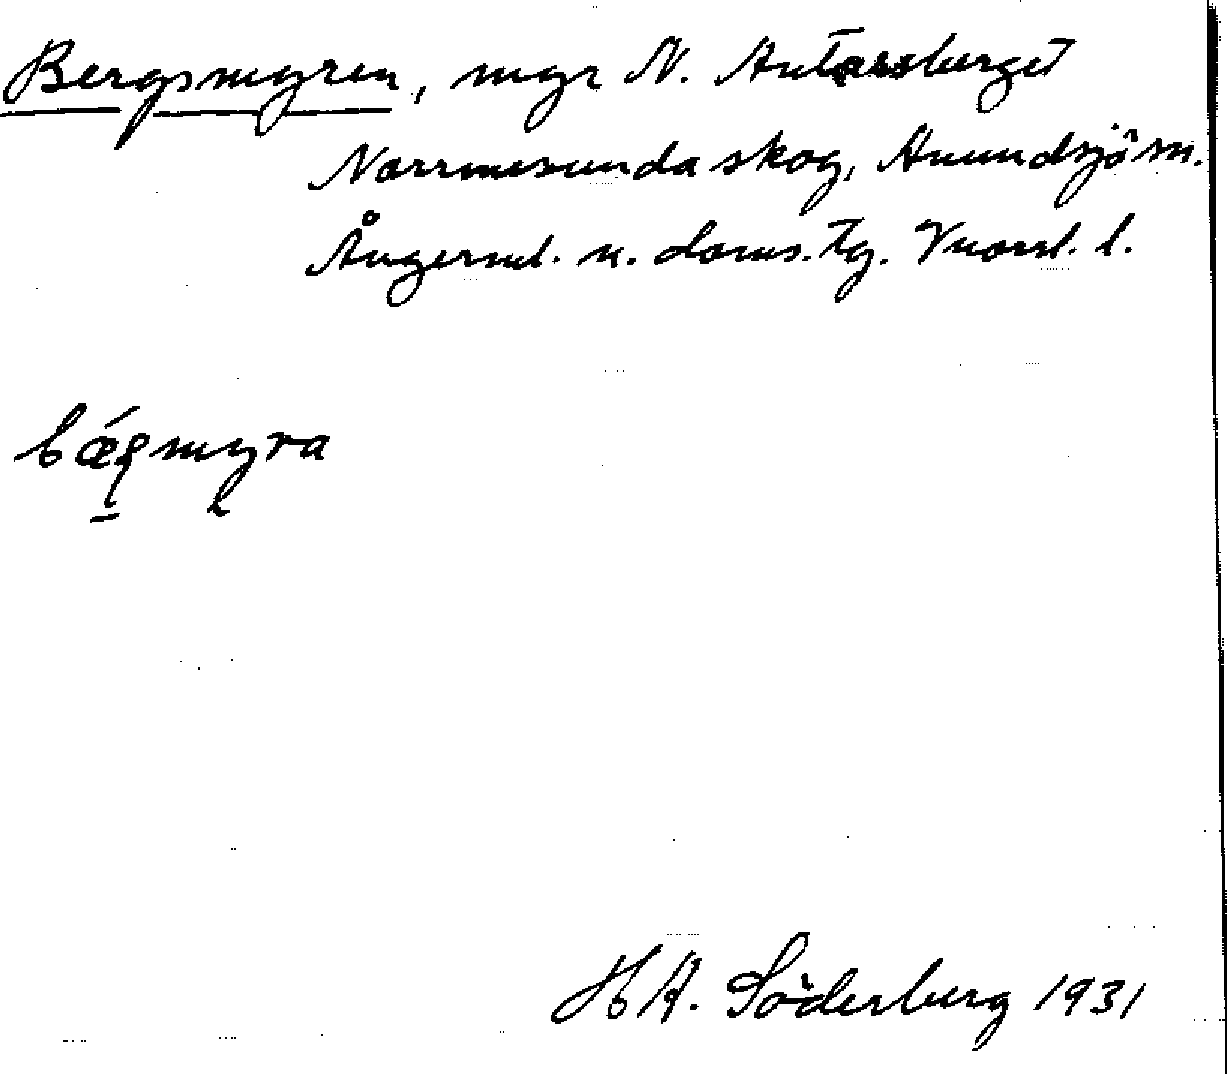 Bergsmyren, myr N. Antarsberget
Norrmesunda skog, Anundsjö sn.
Ångerml. n. doms.tg. Vnorrl. l.
bǽςmyra
H A. Söderberg 1931